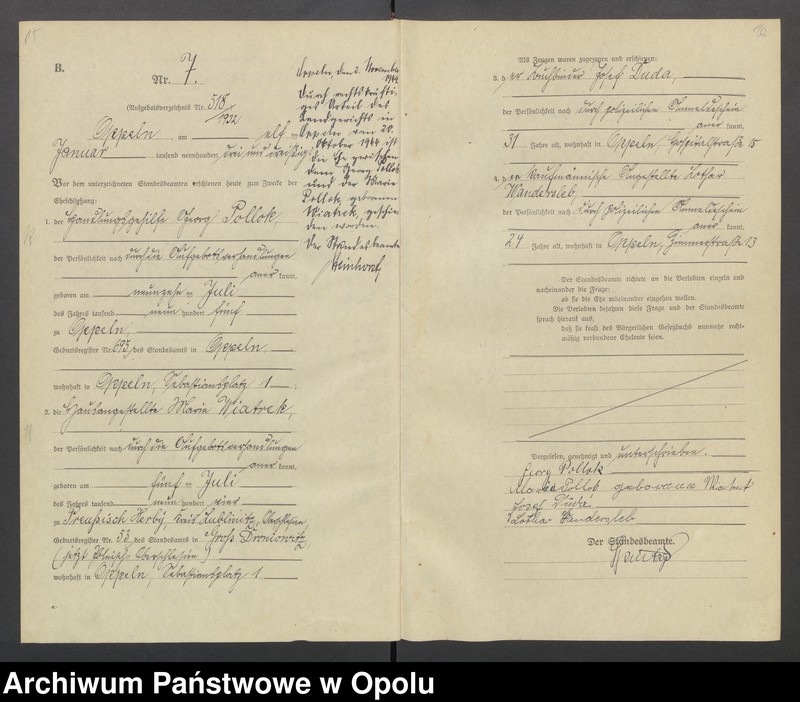 15
B.
Nr. 7.
(Aufgebotsverzeichnis Nr. 518/1932
Oppeln, am elf =
Januar tausend neunhundert drei und dreißig
Vor dem unterzeichneten Standesbeamten erschienen heute zum Zwecke der
Eheschließung:
1. der Handlungsgehilfe Georg Pollok,
der Persönlichkeit nach durch die Aufgebotsverhandlungen
anerkannt,
geboren am neunzehn = Juli
des Jahres tausend neun hundert fünf
zu Oppeln,
Geburtsregister Nr. 695, des Standesamts in Oppeln,
wohnhaft in Oppeln, Sebastiansplatz 1 ;
2. die Hausangestellte Maria Wiatrek,
der Persönlichkeit nach durch die Aufgebotsverhandlungen
anerkannt,
geboren am fünf = Juli
des Jahres tausend neun hundert vier
zu Preußisch Herby, Kreis Lublinitz,
Geburtsregister Nr. 52, des Standesamts in Groß Dronowitz,
(jetzt Polnisch Oberschlesien)
wohnhaft in Oppeln, Sebastiansplatz 1
Oppeln, den 2. November
1944
Durch rechtskräfti-
ges Urteil des
Landgerichts in
Oppeln vom 20.
Oktober 1944 ist
die Ehe zwischen
dem Georg Pollok
und der Maria
Pollok, geborenen
Wiatrek, geschie-
den worden.
Der Standesbeamte
Als Zeugen waren zugezogen und erschienen:
3. der Buchbinder Josef Duda,
der Persönlichkeit nach durch polizeilichen Anmeldeschein
anerkannt,
31 Jahre alt, wohnhaft in Oppeln, Hospitalstraße 15
4. der kaufmännische Angestellte Lothar
Wandersleb,
der Persönlichkeit nach durch polizeilichen Anmeldeschein
anerkannt,
24 Jahre alt, wohnhaft in Oppeln, Zimmerstraße 13
Der Standesbeamte richtete an die Verlobten einzeln und
nacheinander die Frage:
ob sie die Ehe miteinander eingehen wollen.
Die Verlobten bejahten diese Frage und der Standesbeamte
sprach hierauf aus,
daß sie kraft des Bürgerlichen Gesetzbuchs nunmehr recht-
mäßig verbundene Eheleute seien.
Vorgelesen, genehmigt und unterschrieben.
Georg Pollok
Maria Pollok geborene Wiatrek
Josef Duda
Lothar Wandersleb
Der Standesbeamte.
Archiwum Państwowe w Opolu